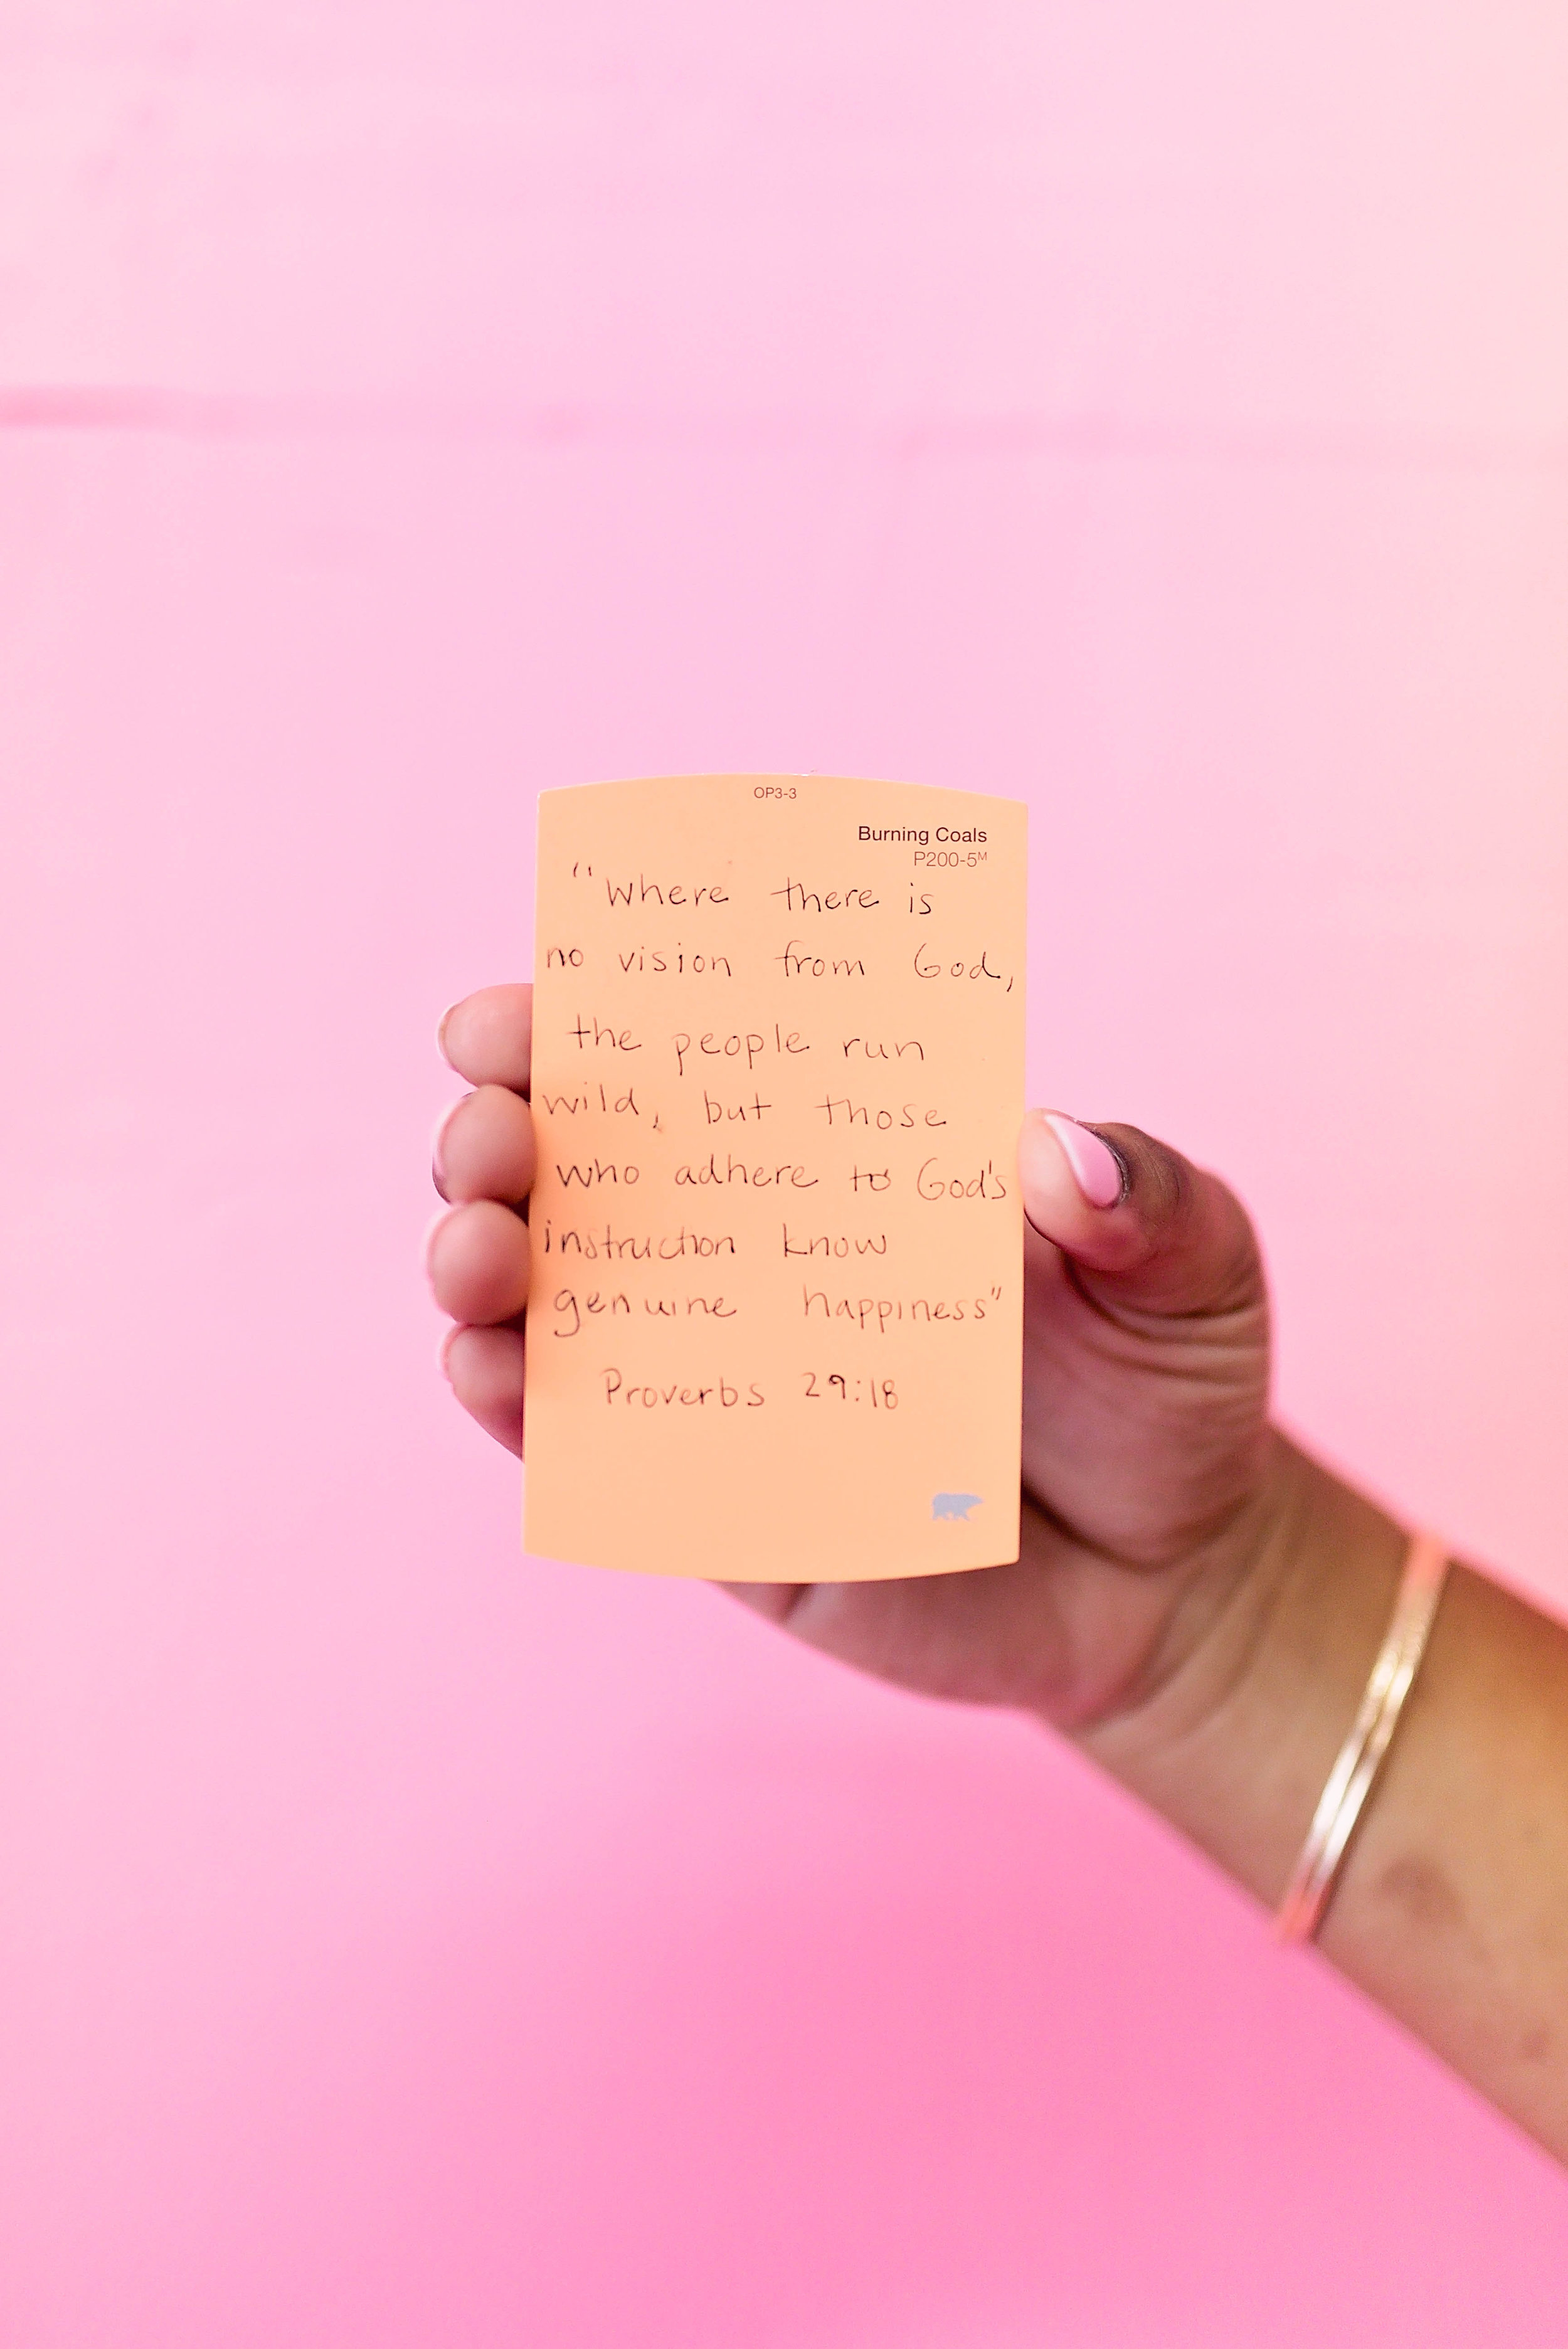 OP3-3
Burning Coals
P200-5ᴹ
"Where there is
no vision from God,
the people run
wild, but those
who adhere to God's
instruction know
genuine happiness"
Proverbs 29:18